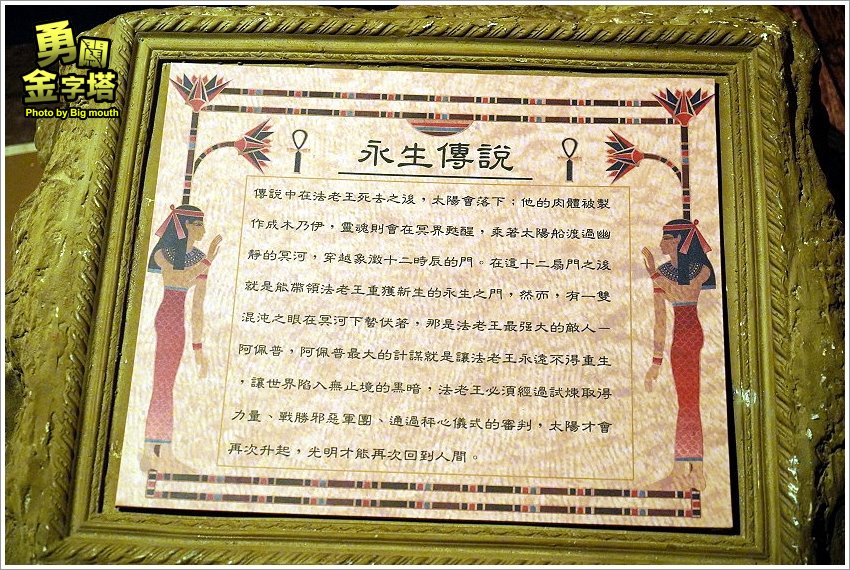 勇闖
金字塔
Photo by Big mouth
永生傳說
傳說中在法老王死去之後，太陽會落下；他的肉體被製
作成木乃伊，靈魂則會在冥界甦醒，乘著太陽船渡過幽
靜的冥河，穿越象徵十二時辰的門。在這十二扇門之後
就是能帶領法老王重獲新生的永生之門，然而，有一雙
混沌之眼在冥河下蟄伏著，那是法老王最強大的敵人－
阿佩普，阿佩普最大的計謀就是讓法老王永遠不得重生
，讓世界陷入無止境的黑暗，法老王必須經過試煉取得
力量、戰勝邪惡軍團、通過秤心儀式的審判，太陽才會
再次升起，光明才能再次回到人間。